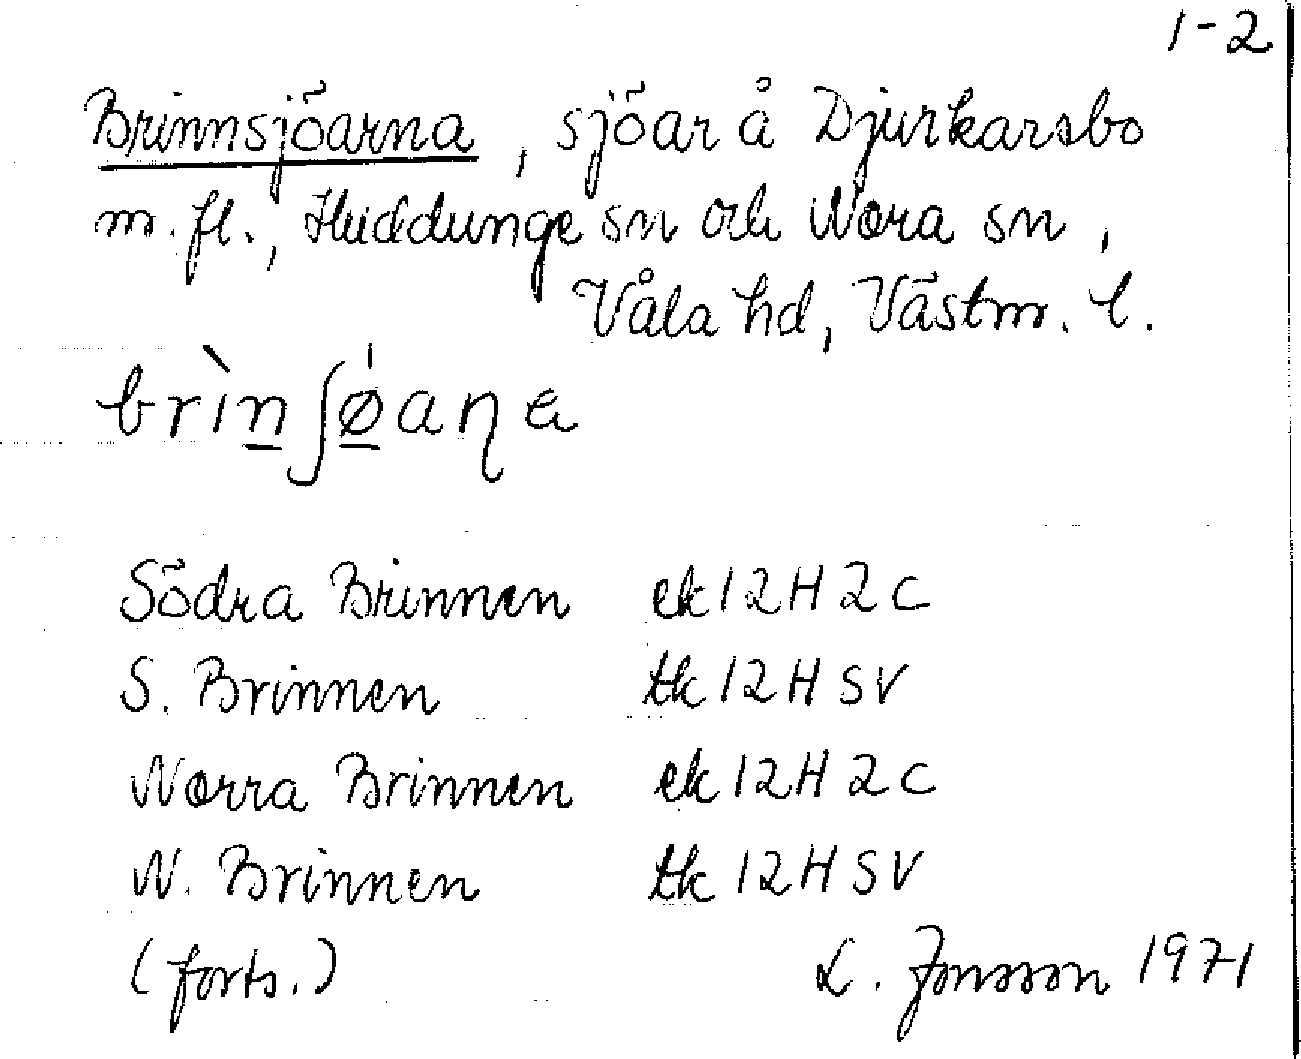 1-2
Brinnsjöarna, sjöar å Djurkarsbo
m. fl., Huddunge sn och Nora sn,
Våla hd, Västm. l.
brìn̲ʃǿ̲aɳɐ
Södra Brinnen ek 12H 2c
S. Brinnen tk 12H SV
Norra Brinnen ek 12H 2c
N. Brinnen tk 12H SV
(forts.) L. Jonsson 1971